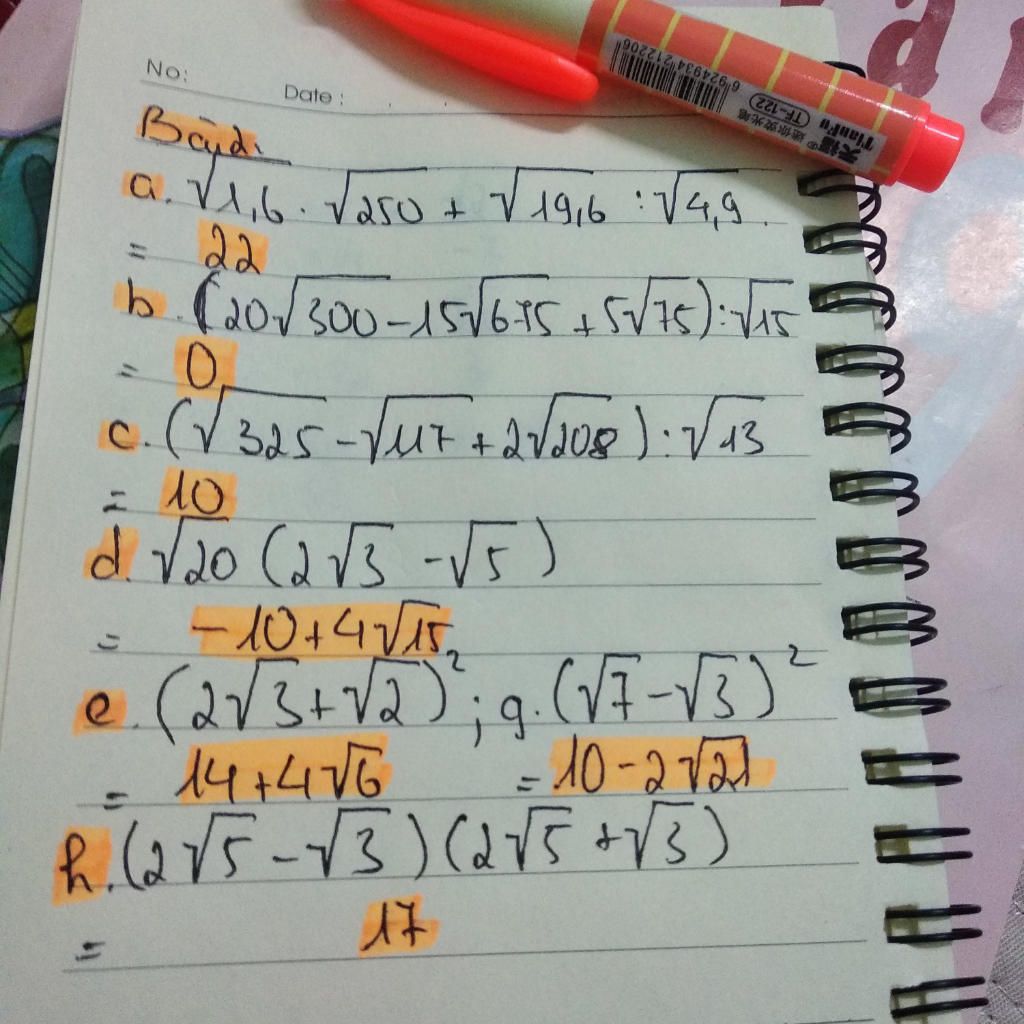 No:
Date :
Bài 2.
a. √1,6 . √250 + √19,6 : √4,9
= 22
b. (20√300 - 15√675 + 5√75) : √15
= 0
c. (√325 - √117 + 2√208) : √13
= 10
d. √20 (2√3 - √5)
= -10 + 4√15
e. (2√3 + √2)² ; g. (√7 - √3)²
= 14 + 4√6 = 10 - 2√21
h. (2√5 - √3)(2√5 + √3)
= 17
6 924934 212206
TF-122
迷你荧光笔
天福®
TianFu